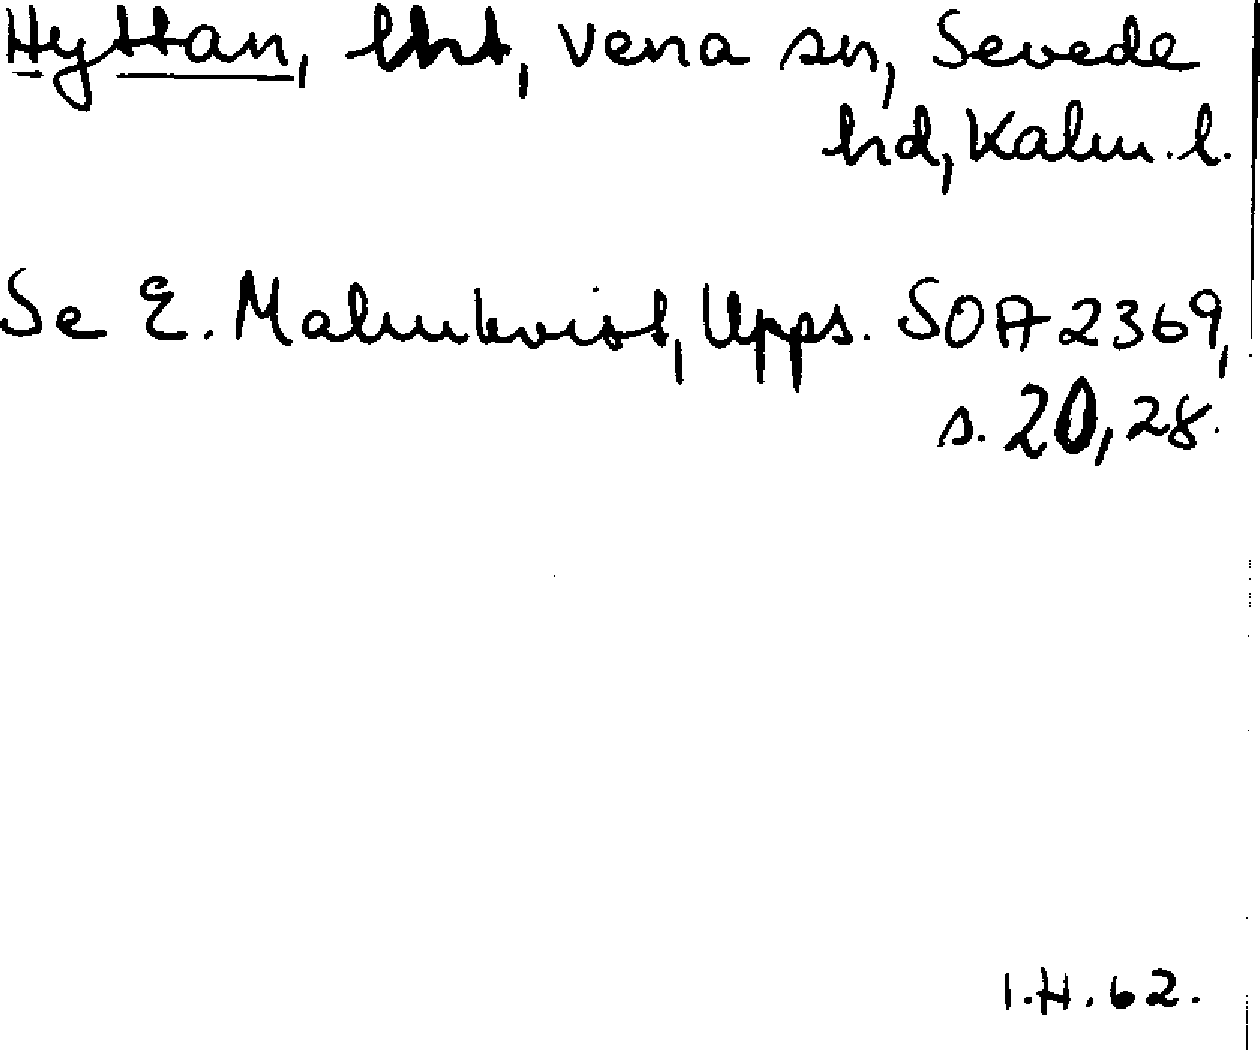 Hyttan, lht, Vena sn, Sevede
hd, Kalm. l.
Se E. Malmkvist, Upps. SOA 2369,
s. 20, 28.
I.H. 62.